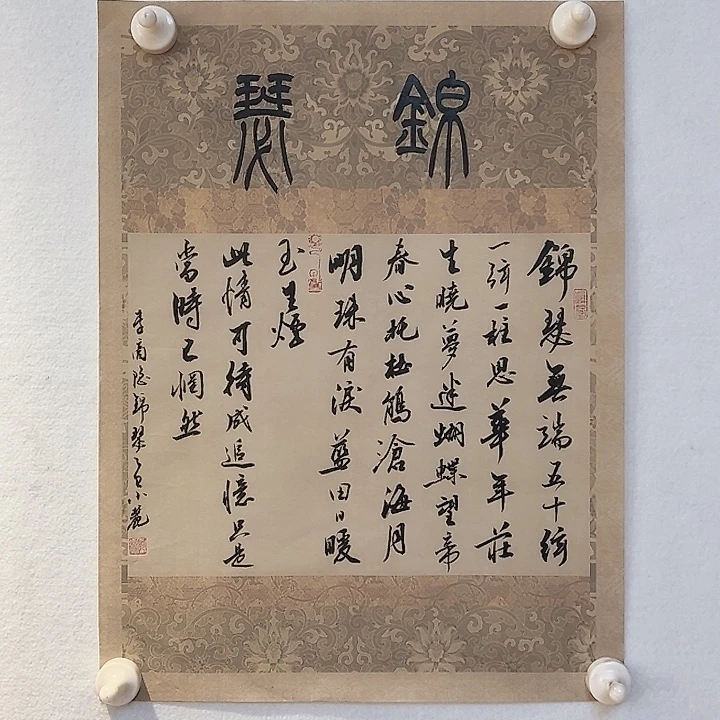 錦瑟
錦瑟無端五十絃
一弦一柱思華年莊
生曉夢迷蝴蝶望帝
春心托杜鵑滄海月
明珠有淚藍田日暖
玉生煙
此情可待成追憶只是
當時已惘然
李商隱錦瑟小麓